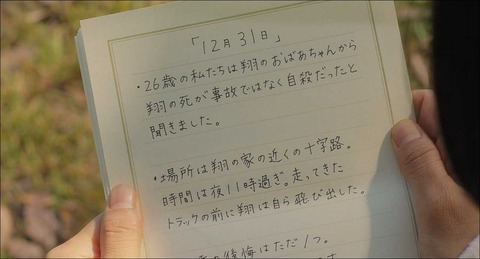 「12月31日」
・26歳の私たちは翔のおばあちゃんから
翔の死が事故ではなく自殺だったと
聞きました。
・場所は翔の家の近くの十字路。
時間は夜11時過ぎ。走ってきた
トラックの前に翔は自ら飛び出した。
の後悔はただ1つ。